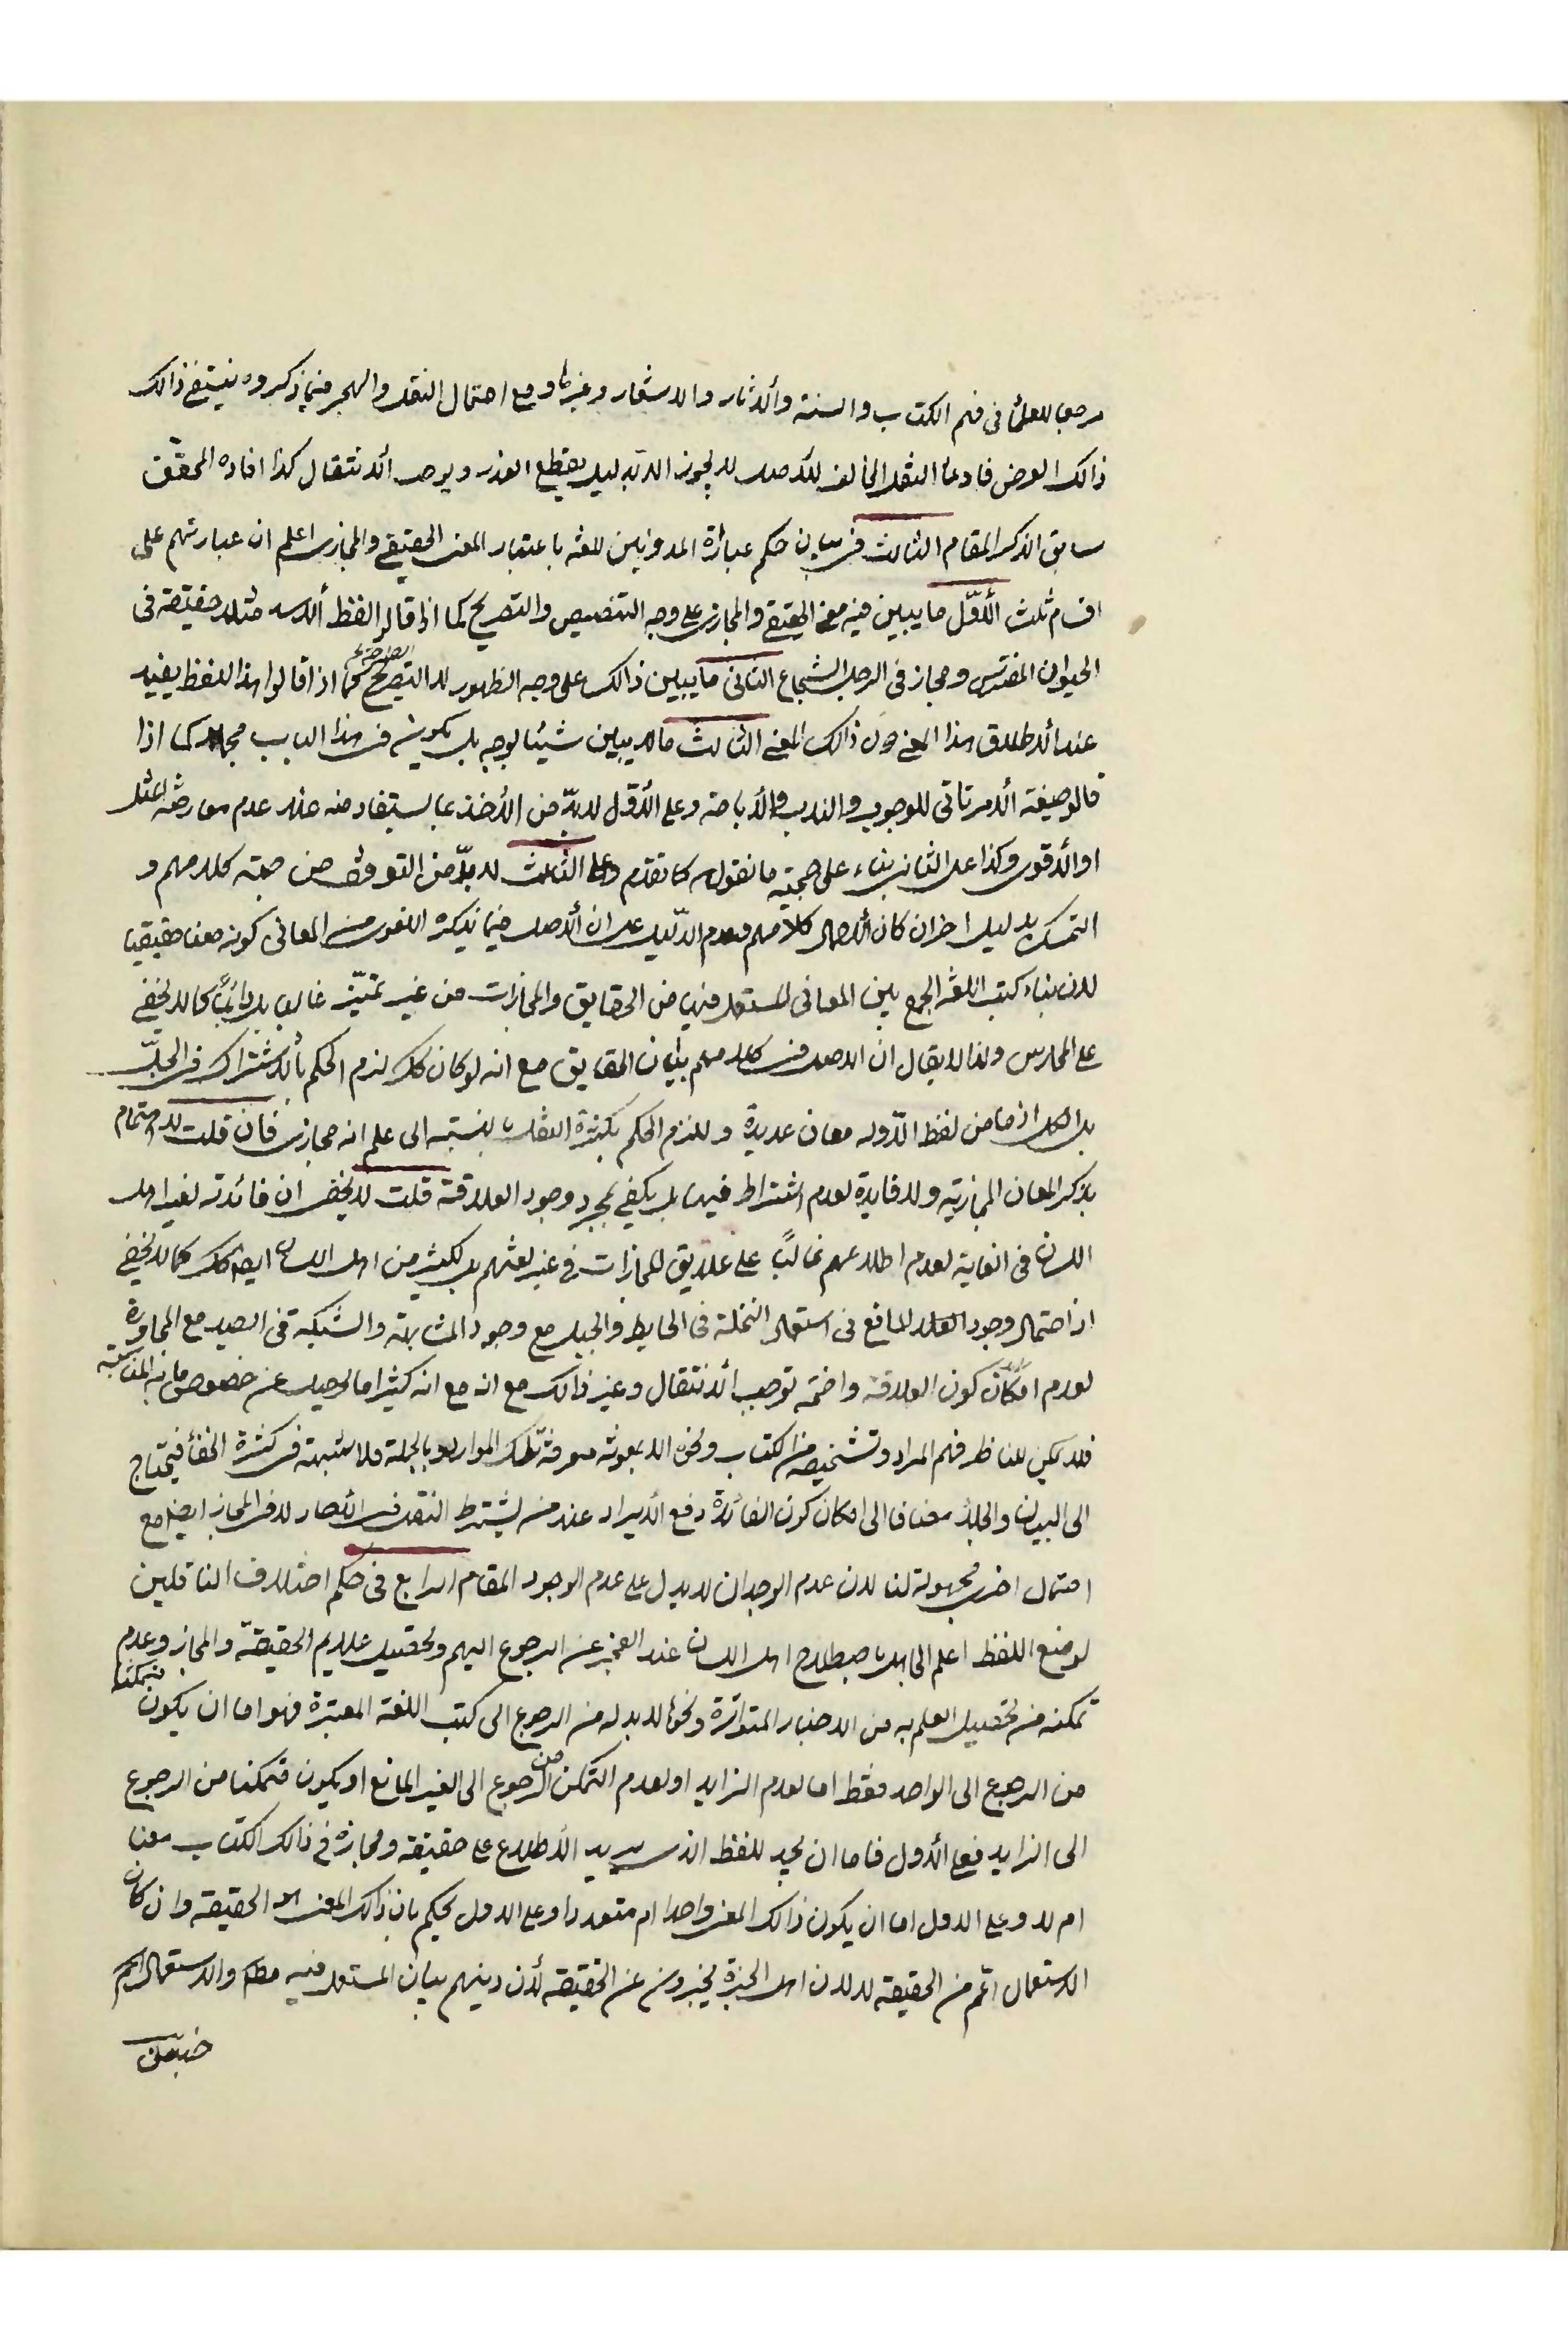 مرجعا للعلماء فى فهم الكتاب والسنة والآثار والاشعار وغيرها ومع احتمال النقل والهجر فيما ذكروه ينتفى ذالك
ذالك الغرض فادعاء النقل المخالف للاصل لا يجوز الا بدليل يقطع العذر ويوجب الانتقال كذا افاده المحقق
سابق الذكر المقام الثالث فى بيان حكم عبارة المدونين للغة باعتبار المعنى الحقيقى والمجازى اعلم ان عبارتهم على
اقسام ثلث الأوّل ما يبين فيه معنى الحقيقى والمجازى على وجه التنصيص والتصريح كما اذا قالوا لفظ الاسد مثلا حقيقة فى
الحيوان المفترس ومجاز فى الرجل الشجاع الثانى ما يبين ذالك على وجه الظهور لا التصريح كما اذا قالوا هذا اللفظ يفيد
عند الاطلاق هذا المعنى دون ذالك المعنى الثالث ما لا يبين شيئا بوجه بل يكون فى هذا الباب مجملا كما اذا
قالوا صيغة الامر تاتى للوجوب والندب والاباحة وعلى الأوّل لا بدّ من الأخذ بما يستفاد منه عند عدم معارضة المثل
او الاقوى وكذا على الثانى بناء على حجية ما نقلوه كما تقدم وعلى الثالث لا بدّ من التوقف من جهة كلامهم و
التمسك بدليل اخر ان كان لاجمال كلامهم وعدم الدّليل على ان الاصل فيما يذكره اللغوى من المعانى كونه معنا حقيقيا
لان بناء كتب اللغة الجمع بين المعانى المستعمل فيها من الحقايق والمجازات من غير تميّز غالبا بل دائماً كما لا يخفى
على الممارس ولذا لا يقال ان الاصل فى كلامهم بيان الحقايق مع انه لو كان كك لزم الحكم بالاشتراك فى الجلّ
بل الكل اذ ما من لفظ الّا وله معان عديدة وللزم الحكم بكثرة النقل بالنسبة الى علم انه مجازى فان قلت لا اهتمام
بذكر المعان المجازية ولا فايدة لعدم اشتراط فيها بل يكفى مجرد وجود العلاقة قلت لا يخفى ان فائدته لغير اهل
اللسان فى الغاية لعدم اطلاعهم غالباً على علايق المجازات فى غير لغتهم بل لكثير من اهل اللسان ايضا كك كما لا يخفى
اذ احتمال وجود المانع فى استعمال النخلة فى الحايط والجبل مع وجود المشابهة والشبكة فى الصيد مع المجاورة
لعدم امكان كون العلاقة واضحة توجب الانتقال وغير ذالك مع انه مع انه كثيرا ما عن خصوص المناسبة
فلا يمكن للناظر فهم المراد وتشخيصه من الكتاب ونحوه الا بعونه معرفة تلك الموارد وبالجملة فلا شبهة فى كثرة الخفاء فيحتاج
الى البيان والجلاء مضافا الى امكان كون الفائدة دفع الايراد عند من يشترط النقل فى الاحاد لا فى المجاز ايضا مع
احتمال اخرى مجهولة لنا لان عدم الوجدان لا يدل على عدم الوجود المقام الرابع فى حكم اختلاف الناقلين
لوضع اللفظ اعلم الجاهل باصطلاح اهل اللسان عند العجز عن الرجوع اليهم وتحصيل علايم الحقيقة والمجاز وعدم
تمكنه من تحصيل العلم به من الاخبار المتواترة ونحوها لا بد له من الرجوع الى كتب اللغة المعتبرة فهو اما ان يكون متمكنا
من الرجوع الى الواحد فقط اما لعدم الزايد او لعدم التمكن من الرجوع الى الغير المانع او يكون متمكنا من الرجوع
الى الزايد فعلى الأول فاما ان يجد للفظ الذى يريد الاطلاع على حقيقته ومجازه فى ذالك الكتاب معنا
ام لا وعلى الاول اما ان يكون ذالك المعنى واحدا ام متعددا وعلى الاول يحكم بان ذالك المعنى هو الحقيقة وان كان
الاستعمال اعم من الحقيقة لا لان اهل الخبرة يخبرون عن الحقيقة لأن دينهم بيان المستعمل فيه مطم والاستعمال اعم